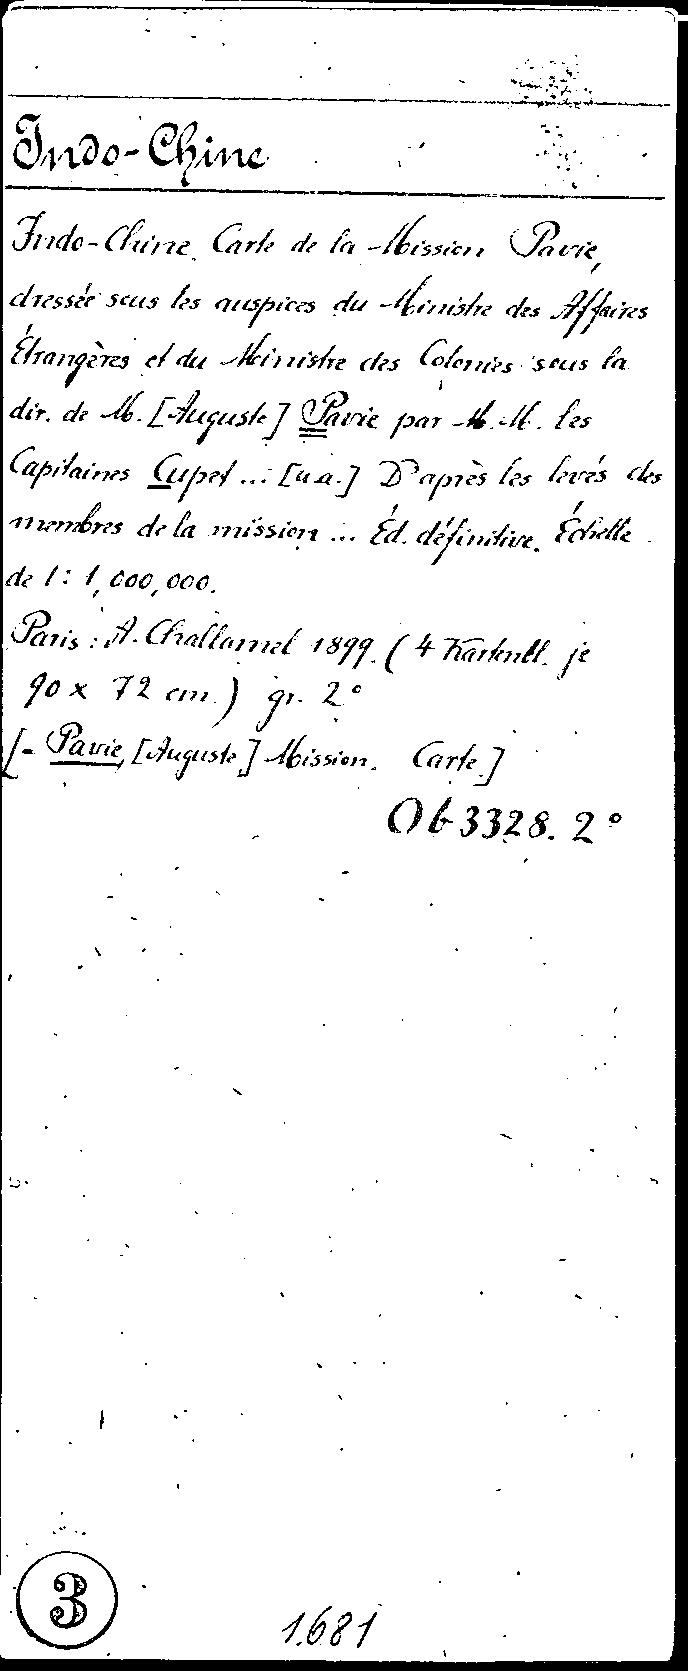 Indo-Chine
Indo-Chine. Carte de la Mission Pavie,
dressée sous les auspices du Ministre des Affaires
Étrangères et du Ministre des Colonies sous la
dir. de M. [Auguste] Pavie par M.M. les
Capitaines Cupet ... [u.a.] D'après les levés des
membres de la mission ... Éd. définitive. Échelle
de 1: 1,000,000.
Paris: A. Challamel 1899. (4 Kartenbl. je
90 x 72 cm.) gr. 2°
[= Pavie, [Auguste] Mission. Carte.]
Ob 3328. 2°
3
1681